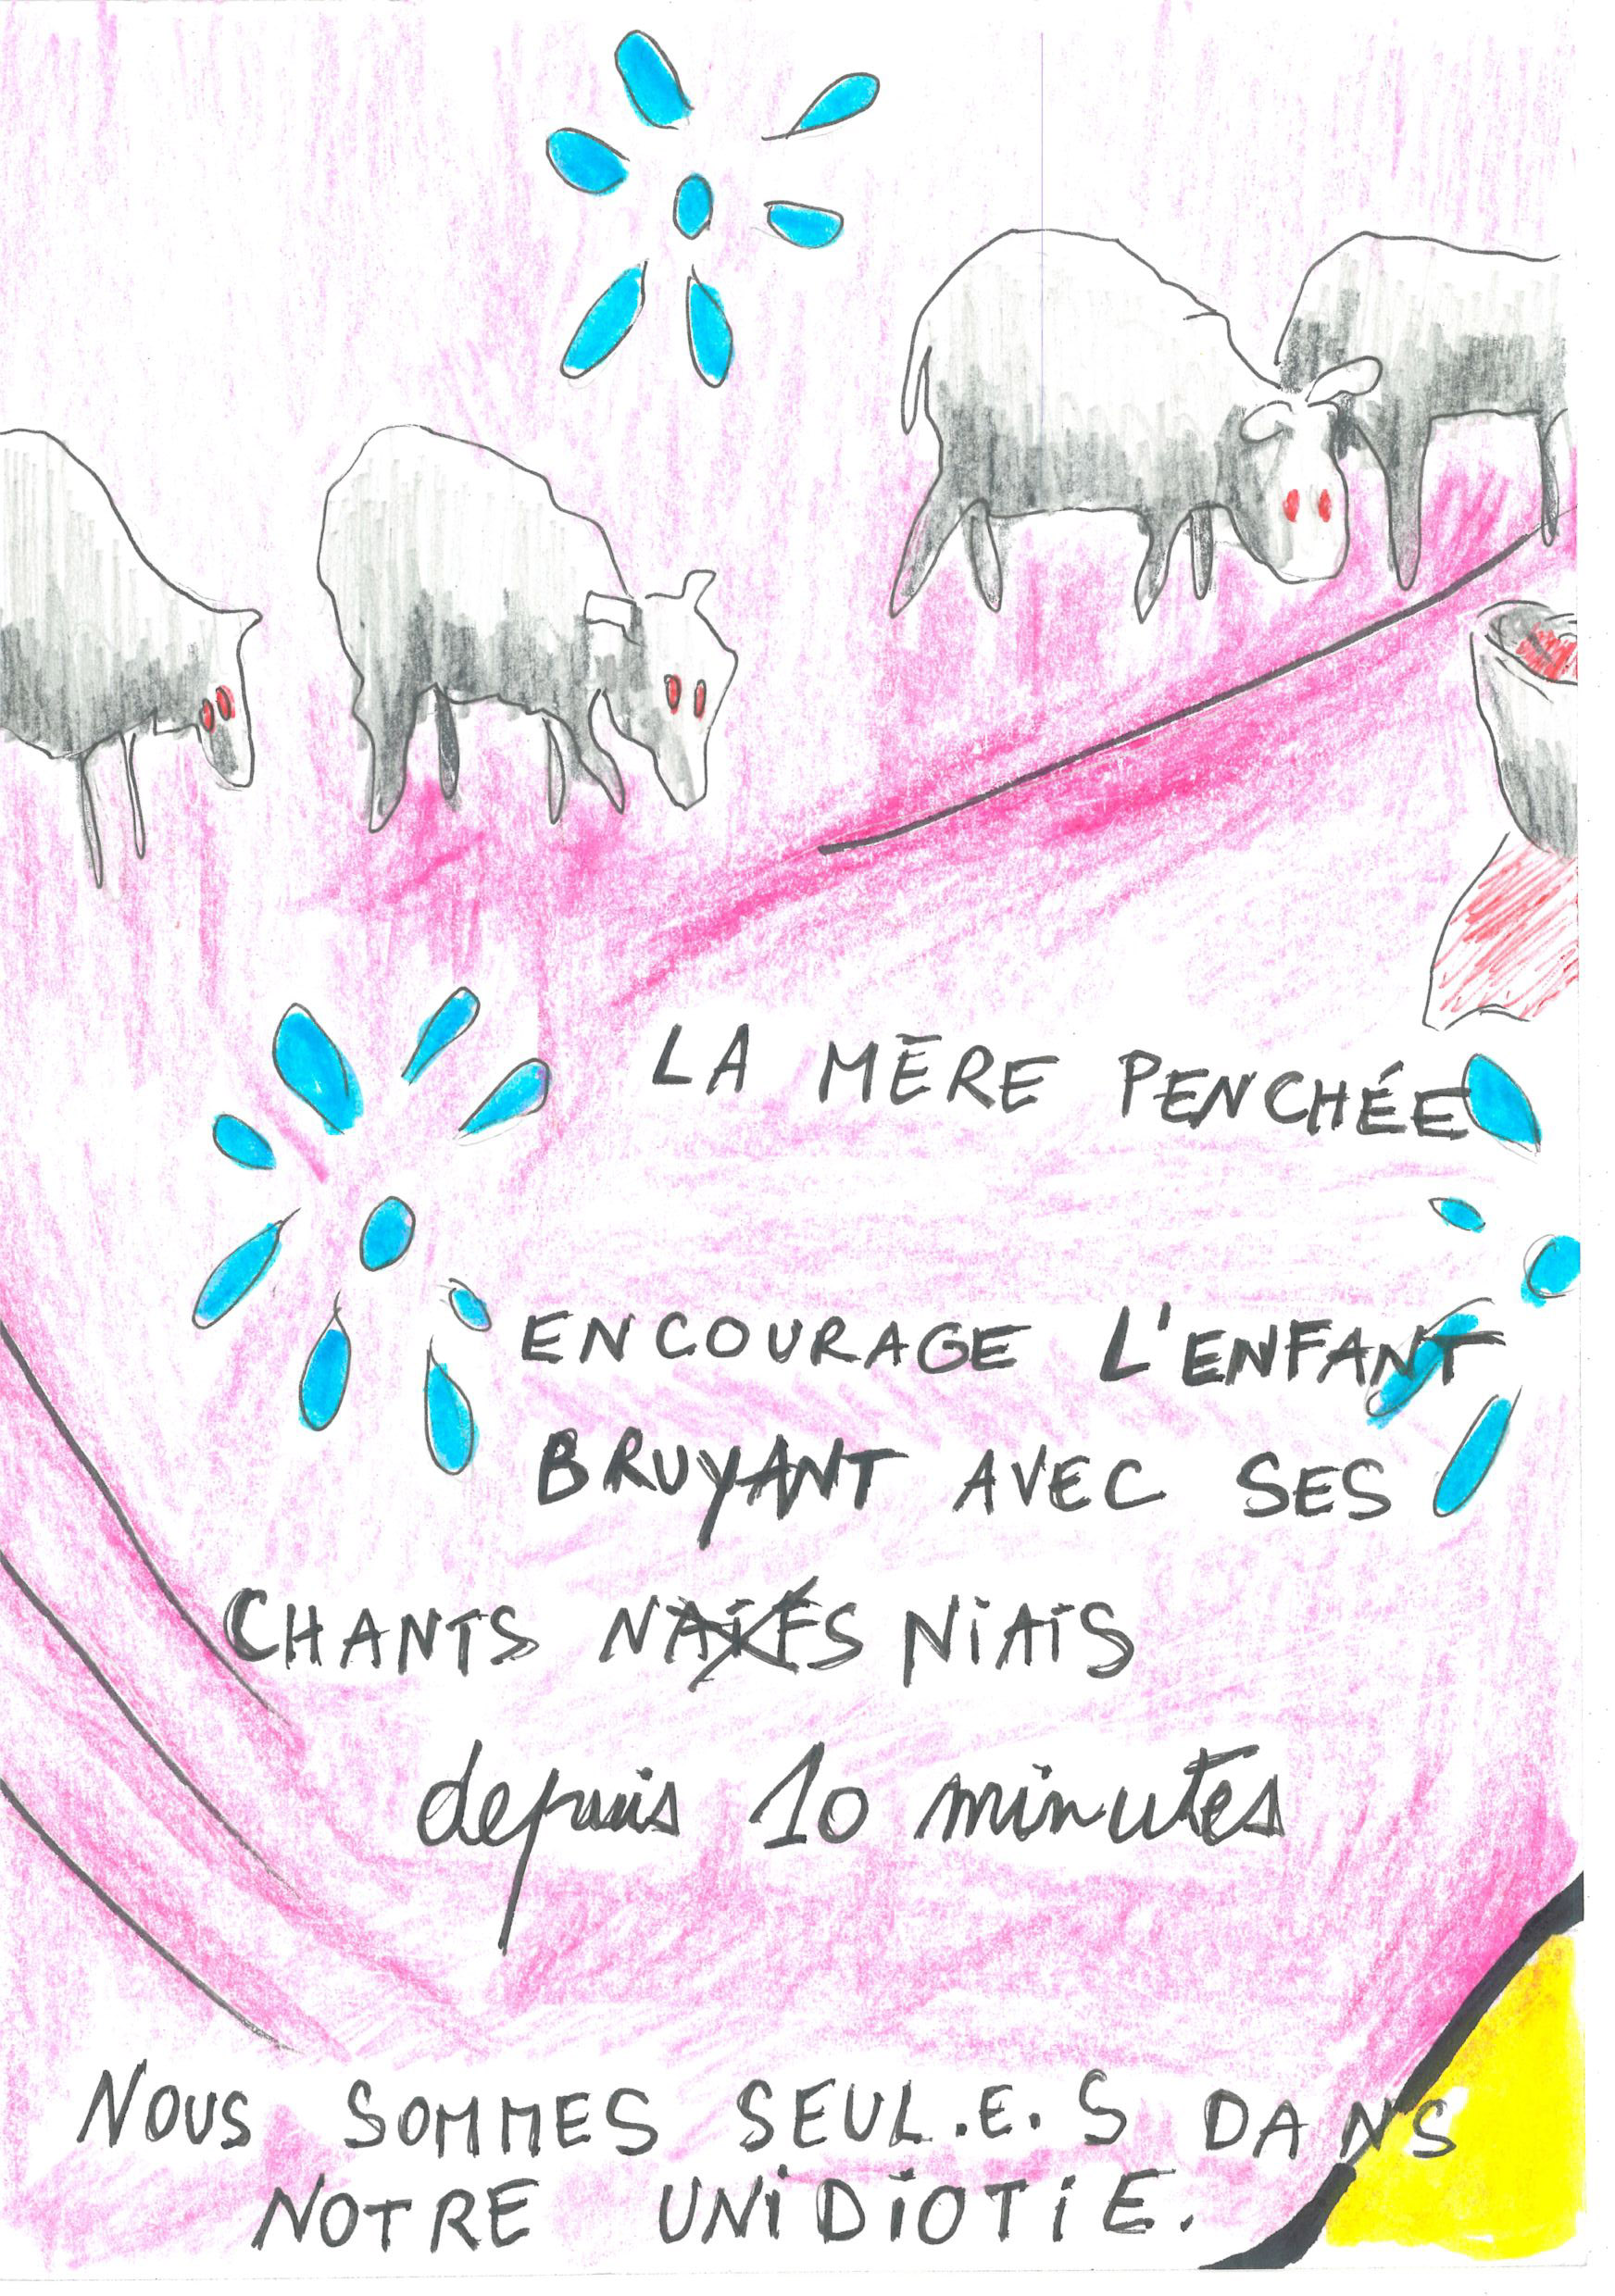 LA MÈRE PENCHÉE
ENCOURAGE L'ENFANT
BRUYANT AVEC SES
CHANTS NAÏFS NIAIS
depuis 10 minutes
NOUS SOMMES SEUL.E.S DANS
NOTRE UNIDIOTIE.